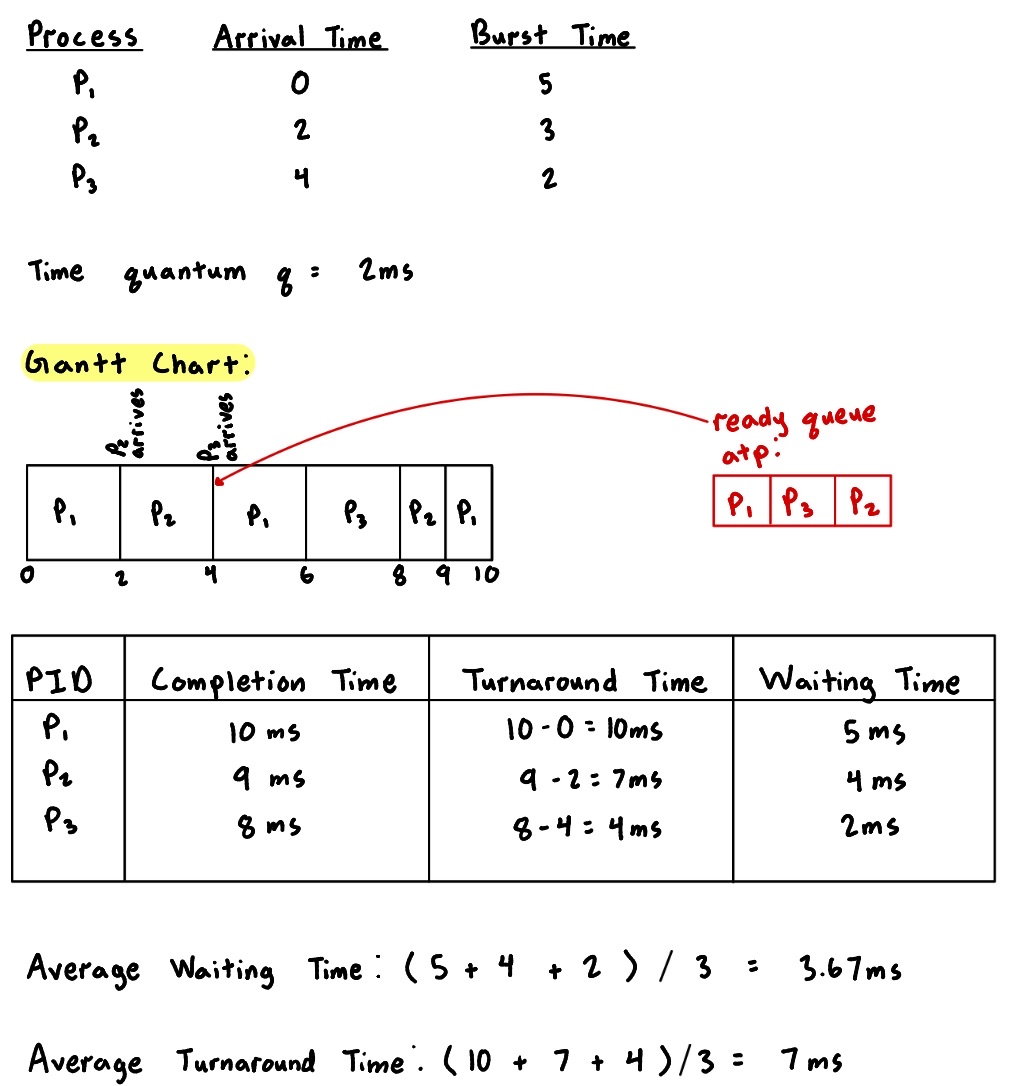 Process Arrival Time Burst Time
P₁ 0 5
P₂ 2 3
P₃ 4 2
Time quantum q = 2ms
Gantt Chart:
P₂ arrives P₃ arrives
ready queue
atp:
P₁ P₂ P₁ P₃ P₂ P₁
P₁ P₃ P₂
0 2 4 6 8 9 10
PID Completion Time Turnaround Time Waiting Time
P₁ 10 ms 10 - 0 = 10ms 5 ms
P₂ 9 ms 9 - 2 = 7ms 4 ms
P₃ 8 ms 8 - 4 = 4ms 2ms
Average Waiting Time: (5 + 4 + 2) / 3 = 3.67ms
Average Turnaround Time: (10 + 7 + 4)/3 = 7ms